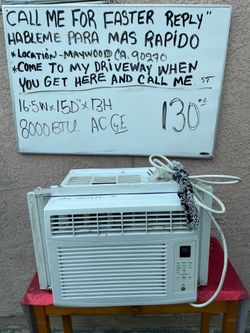 CALL ME FOR FASTER REPLY"
HABLEME PARA MAS RAPIDO
*LOCATION-MAYWOOD CA. 90270
*COME TO MY DRIVEWAY WHEN
YOU GET HERE AND CALL ME
16.5W x 15D" x 13H
8000 BTU. AC GE
130